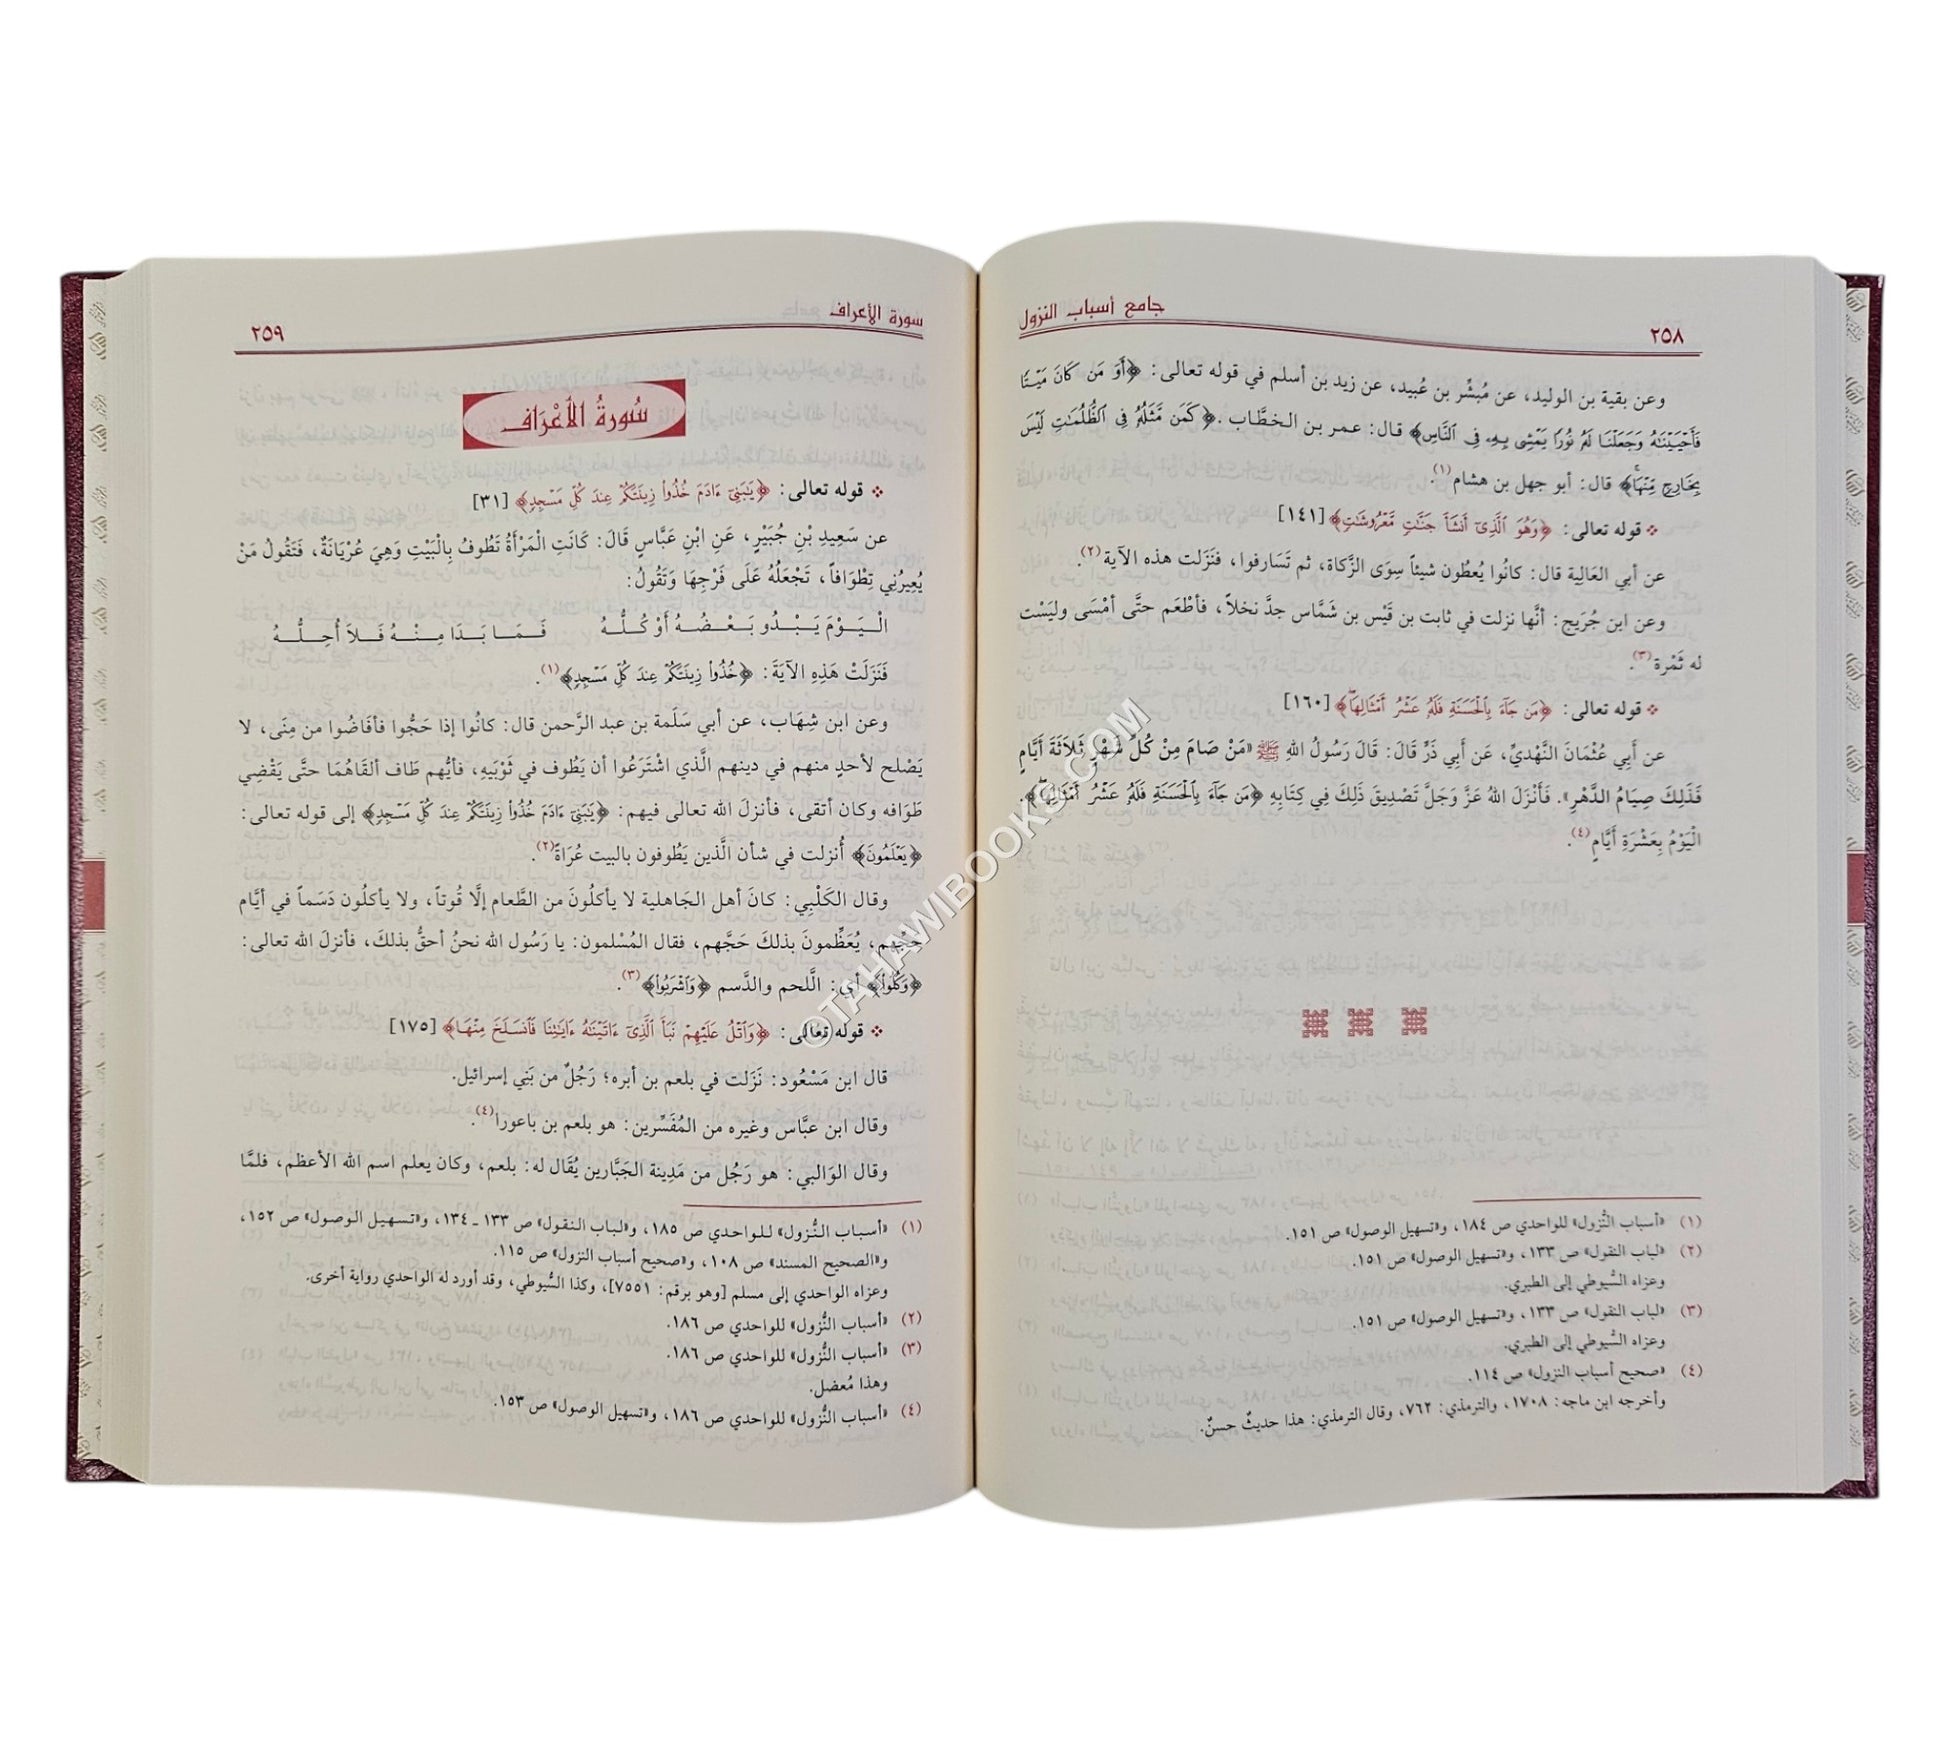 جامع أسباب النزول
٢٥٨
وعن بقية بن الوليد، عن مُبشِّر بن عُبيد، عن زيد بن أسلم في قوله تعالى: ﴿أَوَ مَن كَانَ مَيْتًا
فَأَحْيَيْنَٰهُ وَجَعَلْنَا لَهُۥ نُورًا يَمْشِى بِهِۦ فِى ٱلنَّاسِ﴾ قال: عمر بن الخطَّاب. ﴿كَمَن مَّثَلُهُۥ فِى ٱلظُّلُمَٰتِ لَيْسَ
بِخَارِجٍ مِّنْهَا﴾ قال: أبو جهل بن هشام(١).
❖ قوله تعالى: ﴿وَهُوَ ٱلَّذِىٓ أَنشَأَ جَنَّٰتٍ مَّعْرُوشَٰتٍ﴾ [١٤١]
عن أبي العَالِية قال: كانُوا يُعطُون شيئاً سِوَى الزَّكاة، ثم تَسَارفوا، فنَزَلت هذه الآية(٢).
وعن ابن جُرَيج: أنَّها نزلت في ثابت بن قَيْس بن شَمَّاس جدَّ نخلاً، فأطْعَم حتَّى أمْسَى وليَسْت
له ثَمْرة(٣).
❖ قوله تعالى: ﴿مَن جَآءَ بِٱلْحَسَنَةِ فَلَهُۥ عَشْرُ أَمْثَالِهَا﴾ [١٦٠]
عن أَبِي عُثْمَانَ النَّهْدِيِّ، عَن أَبِي ذَرٍّ قَالَ: قَالَ رَسُولُ اللهِ ﷺ «مَنْ صَامَ مِنْ كُلِّ شَهْرٍ ثَلاَثَةَ أَيَّامٍ
فَذَلِكَ صِيَامُ الدَّهْرِ». فَأَنْزَلَ اللهُ عَزَّ وَجَلَّ تَصْدِيقَ ذَلِكَ فِي كِتَابِهِ ﴿مَن جَآءَ بِٱلْحَسَنَةِ فَلَهُۥ عَشْرُ أَمْثَالِهَا﴾.
الْيَوْمُ بِعَشْرَةِ أَيَّامٍ(٤).
(١) «أسباب النُّزول» للواحدي ص ١٨٤، و«تسهيل الوصول» ص ١٥١.
(٢) «لباب النقول» ص ١٣٣، و«تسهيل الوصول» ص ١٥١.
وعزاه السُّيوطي إلى الطبري.
(٣) «لباب النقول» ص ١٣٣، و«تسهيل الوصول» ص ١٥١.
وعزاه السُّيوطي إلى الطبري.
(٤) «صحيح أسباب النزول» ص ١١٤.
وأخرجه ابن ماجه: ١٧٠٨، والترمذي: ٧٦٢، وقال الترمذي: هذا حديثٌ حسنٌ.
سورة الأعراف
٢٥٩
سُورَةُ الأَعْرَاف
❖ قوله تعالى: ﴿يَٰبَنِىٓ ءَادَمَ خُذُوا۟ زِينَتَكُمْ عِندَ كُلِّ مَسْجِدٍ﴾ [٣١]
عن سَعِيدِ بْنِ جُبَيْرٍ، عَنِ ابْنِ عَبَّاسٍ قَالَ: كَانَتِ الْمَرْأَةُ تَطُوفُ بِالْبَيْتِ وَهِيَ عُرْيَانَةٌ، فَتَقُولُ مَنْ
يُعِيرُنِي تِطْوَافاً، تَجْعَلُهُ عَلَى فَرْجِهَا وَتَقُولُ:
الْيَوْمَ يَبْدُو بَعْضُهُ أَوْ كُلُّهُ فَمَا بَدَا مِنْهُ فَلاَ أُحِلُّهُ
فَنَزَلَتْ هَذِهِ الآيَةَ: ﴿خُذُوا۟ زِينَتَكُمْ عِندَ كُلِّ مَسْجِدٍ﴾(١).
وعن ابن شِهَاب، عن أبي سَلَمة بن عبد الرَّحمن قال: كانُوا إذا حَجُّوا فأفَاضُوا من مِنَى، لا
يَصْلح لأحدٍ منهم في دينهم الَّذي اشْتَرَعُوا أن يَطُوف في ثَوْبَيهِ، فأيُّهم طَاف ألقَاهُمَا حتَّى يَقْضِي
طَوَافه وكان أتقى، فأنزلَ الله تعالى فيهم: ﴿يَٰبَنِىٓ ءَادَمَ خُذُوا۟ زِينَتَكُمْ عِندَ كُلِّ مَسْجِدٍ﴾ إلى قوله تعالى:
﴿يَعْلَمُونَ﴾ أُنزلت في شأن الَّذين يَطُوفون بالبيت عُرَاةً(٢).
وقال الكَلْبِي: كانَ أهل الجَاهلية لا يأكلُونَ من الطَّعام إلَّا قُوتاً، ولا يأكلُون دَسَماً في أيَّام
حَجِّهم، يُعَظِّمونَ بذلكَ حَجَّهم، فقال المُسْلمون: يا رَسُول الله نحنُ أحقُّ بذلكَ، فأنزلَ الله تعالى:
﴿وَكُلُوا۟﴾ أي: الَّلحم والدَّسم ﴿وَٱشْرَبُوا۟﴾(٣).
❖ قوله تعالى: ﴿وَٱتْلُ عَلَيْهِمْ نَبَأَ ٱلَّذِىٓ ءَاتَيْنَٰهُ ءَايَٰتِنَا فَٱنسَلَخَ مِنْهَا﴾ [١٧٥]
قال ابن مَسْعُود: نَزَلت في بلعم بن أبره؛ رَجُلٌ من بَنِي إسرائيل.
وقال ابن عبَّاس وغيره من المُفَسِّرين: هو بلعم بن باعورا(٤).
وقال الوَالبي: هو رَجُل من مَدِينة الجَبَّارين يُقَال له: بلعم، وكان يعلم اسم الله الأعظم، فلمَّا
(١) «أسباب النُّزول» للواحدي ص ١٨٥، و«لباب النقول» ص ١٣٣ ـ ١٣٤، و«تسهيل الوصول» ص ١٥٢،
و«الصحيح المسند» ص ١٠٨، و«صحيح أسباب النزول» ص ١١٥.
وعزاه الواحدي إلى مسلم [وهو برقم: ٧٥٥١]، وكذا السُّيوطي، وقد أورد له الواحدي رواية أخرى.
(٢) «أسباب النُّزول» للواحدي ص ١٨٦.
(٣) «أسباب النُّزول» للواحدي ص ١٨٦.
وهذا مُعضل.
(٤) «أسباب النُّزول» للواحدي ص ١٨٦، و«تسهيل الوصول» ص ١٥٣.
©TAHAWIBOOKS.COM